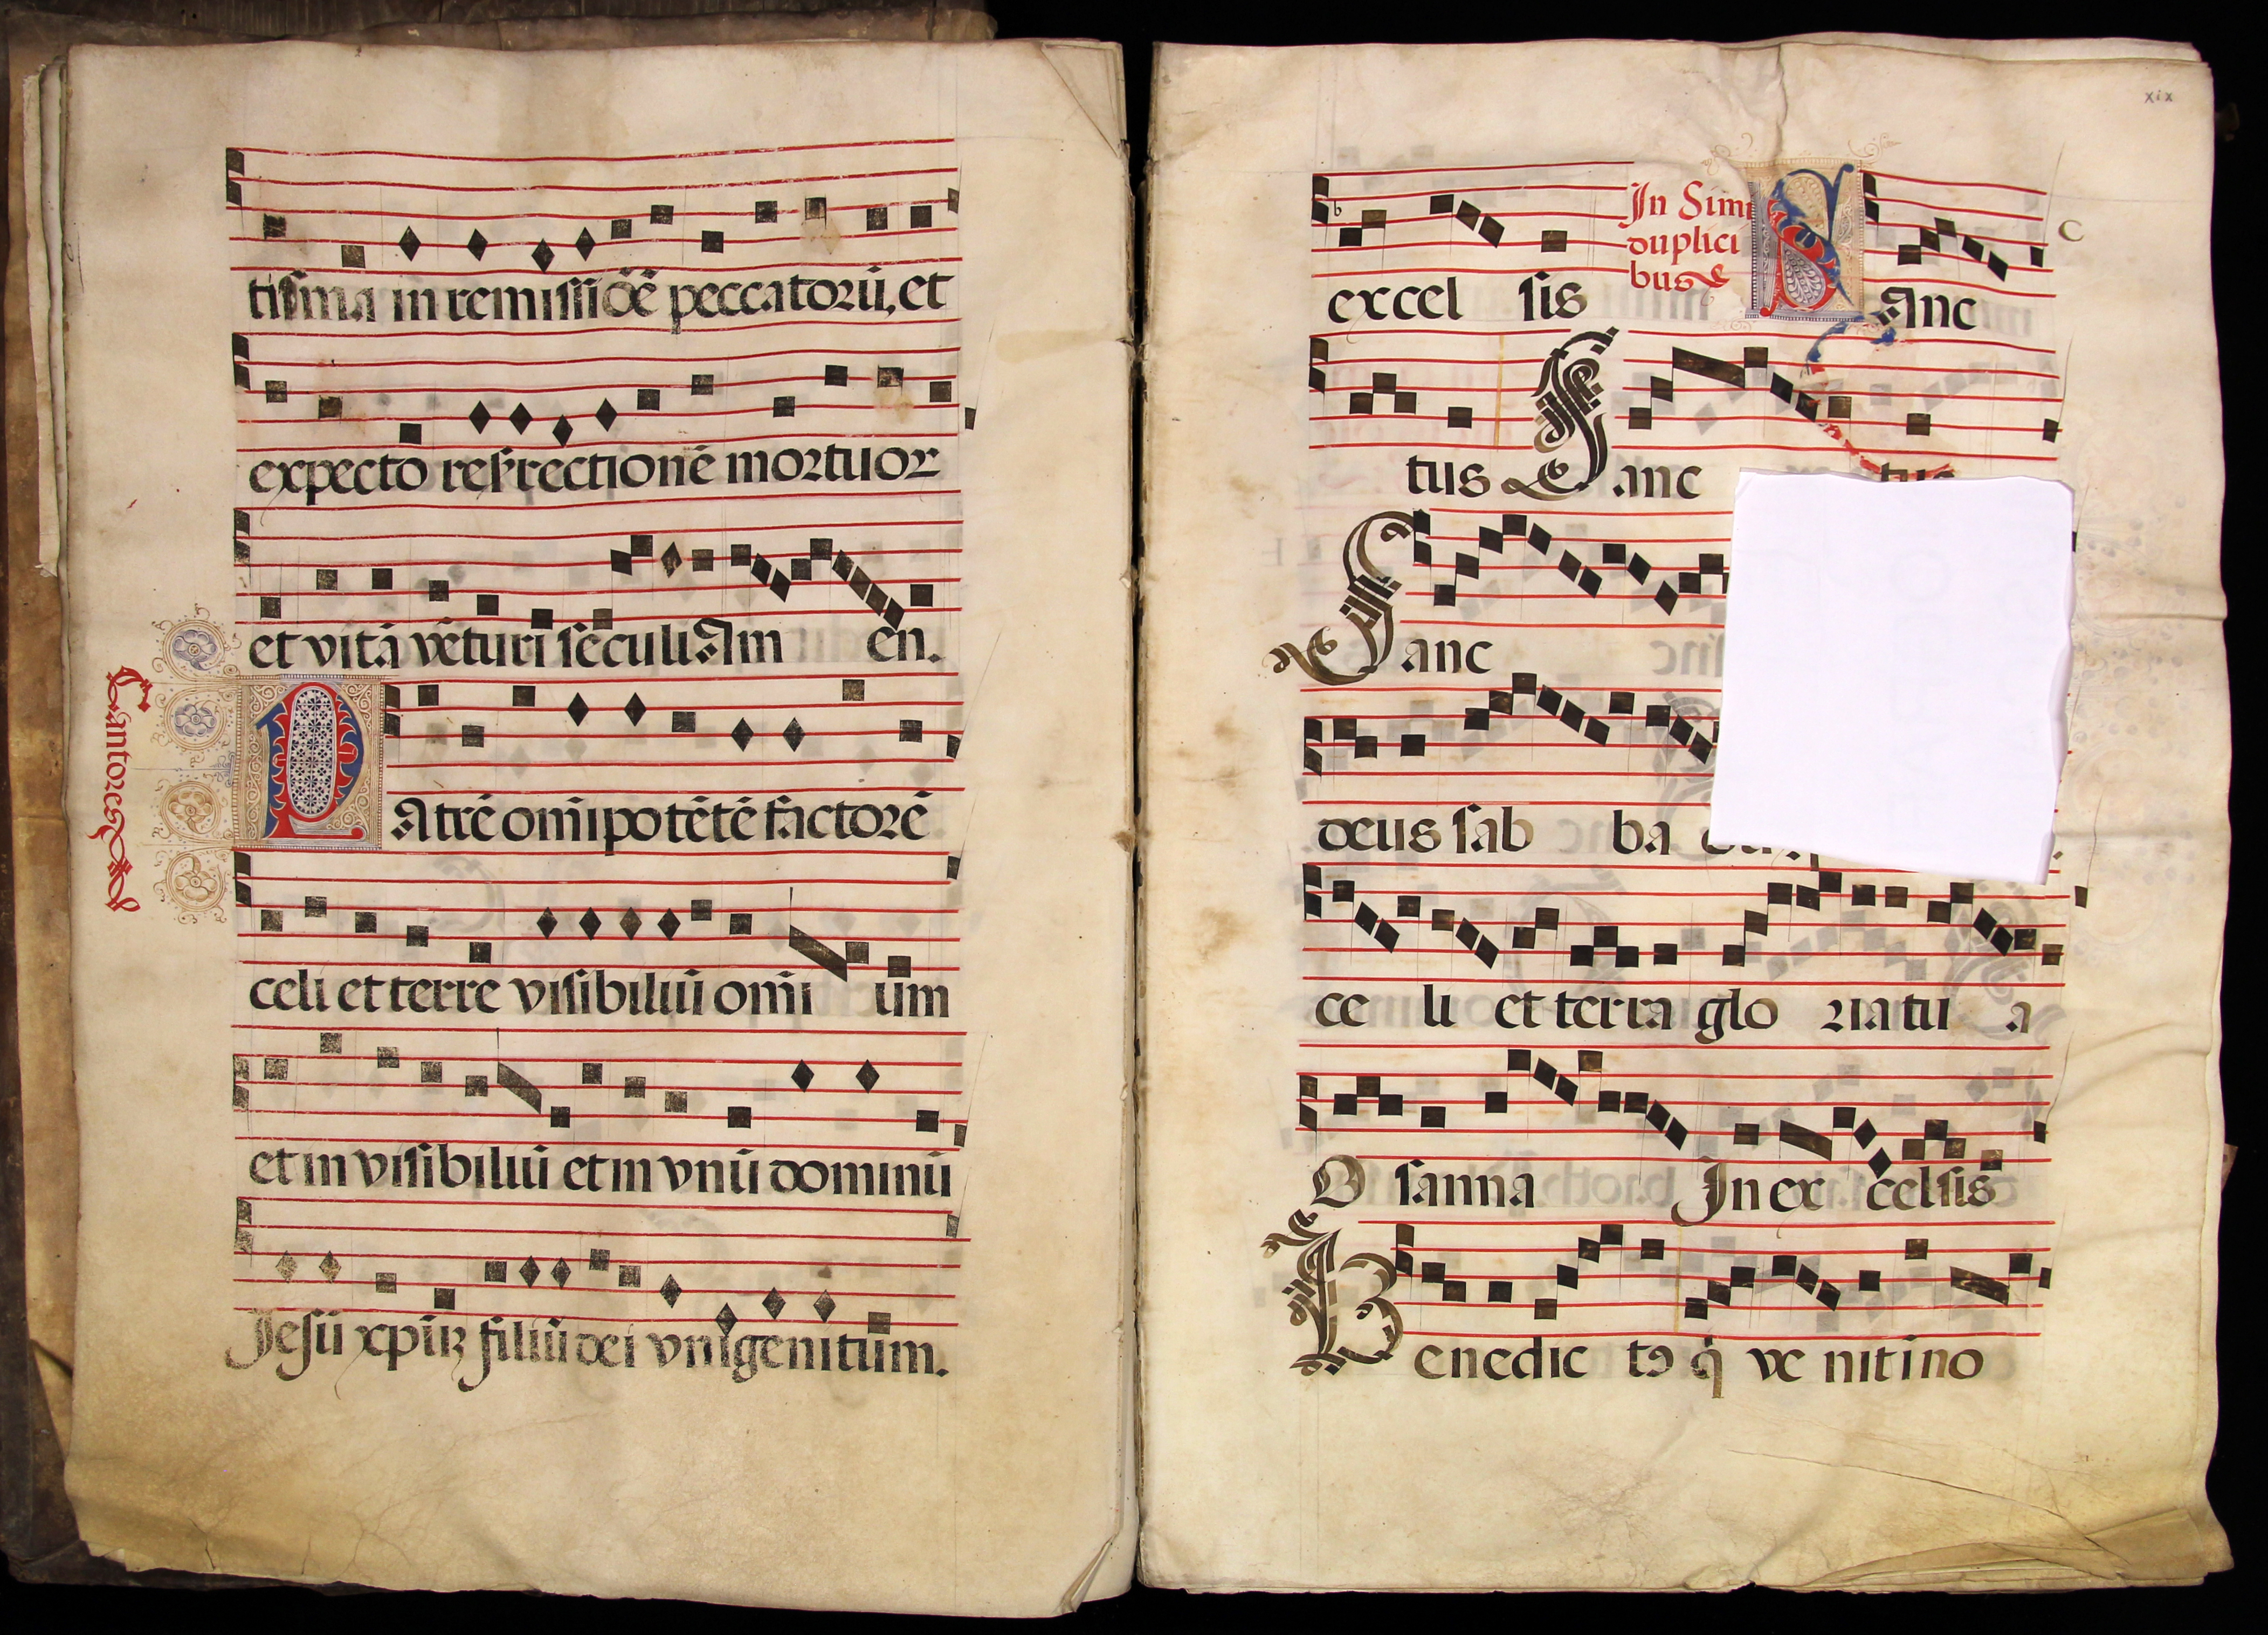 tissma in remissiõē peccatorū, et
expecto resrrectionē mortuor
et vitā vēturi seculi Am en.
Cantores
Patrē omīpotētē factorē
celi et terre visibiliū omī um
et in visibiliū et in vnū dominū
Jesū xpūꝫ filiū dei vnigenitum.
xix
In Simi
duplici
bus
excel sis Sanc
tus Sanc tus
Sanc
deus sab ba
ce li et terra glo ria tu a
O sanna In ex celsis
Benedic tꝰ q̄ ve nit in no